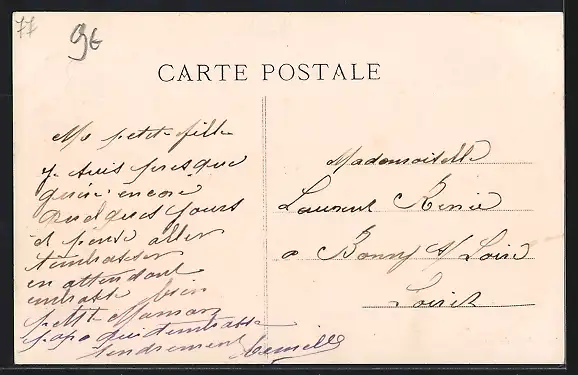 77
96
CARTE POSTALE
Ma petite fille
je suis presque
guérie encore
quelques jours
et pense aller
t'embrasser
en attendant
embrasse bien
petite Maman
papa qui t'embrasse
tendrement Camille
Mademoiselle
Laurent Renée
a Bonny s/ Loire
Loiret